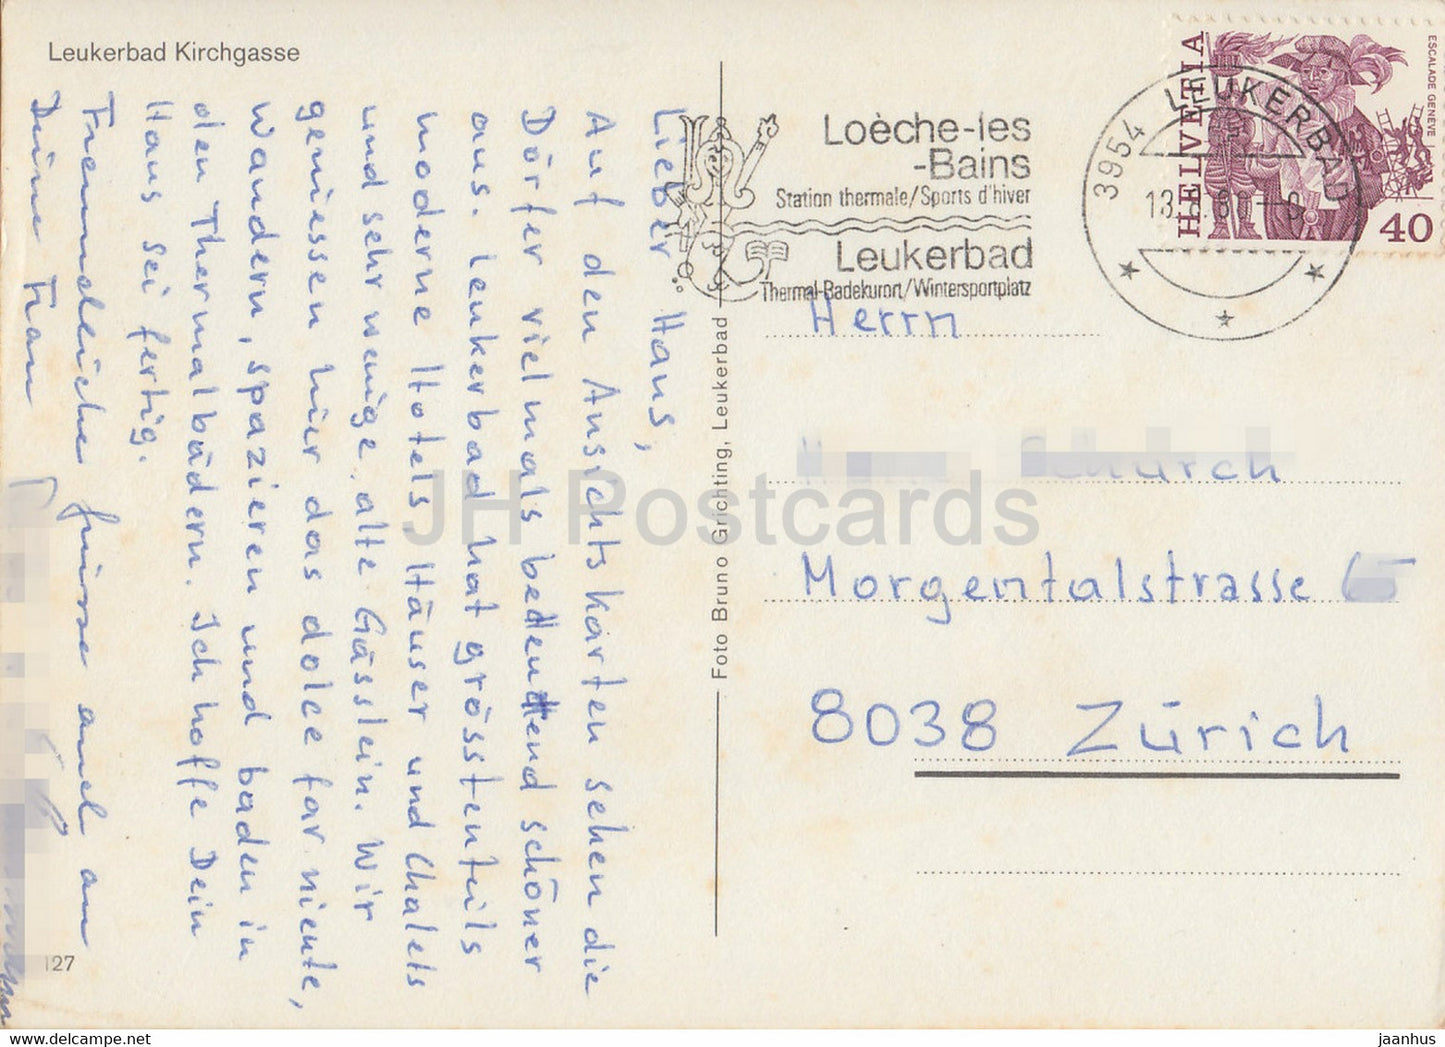 Leukerbad Kirchgasse
Lieber Haus,
Auf den Ansichtskarten sehen die
Dörfer vielmals bedeutend schöner
aus. Leukerbad hat grösstenteils
moderne Hotels, Häuser und Chalets
und sehr wenige alte Gässlein. Wir
geniessen hier das dolce far niente,
wandern, spazieren und baden in
den Thermalbädern. Ich hoffe Dein
Haus sei fertig.
Freundliche Grüsse auch an
Deine Frau
127
Foto Bruno Grichting, Leukerbad
Loèche-les
-Bains
Station thermale/Sports d'hiver
Leukerbad
Thermal-Badekurort/Wintersportplatz
3954 LEUKERBAD
HELVETIA
ESCALADE GENÈVE
40
Herrn
Schürch
Morgentalstrasse
8038 Zürich
JH Postcards
www.delcampe.net
jaanhus